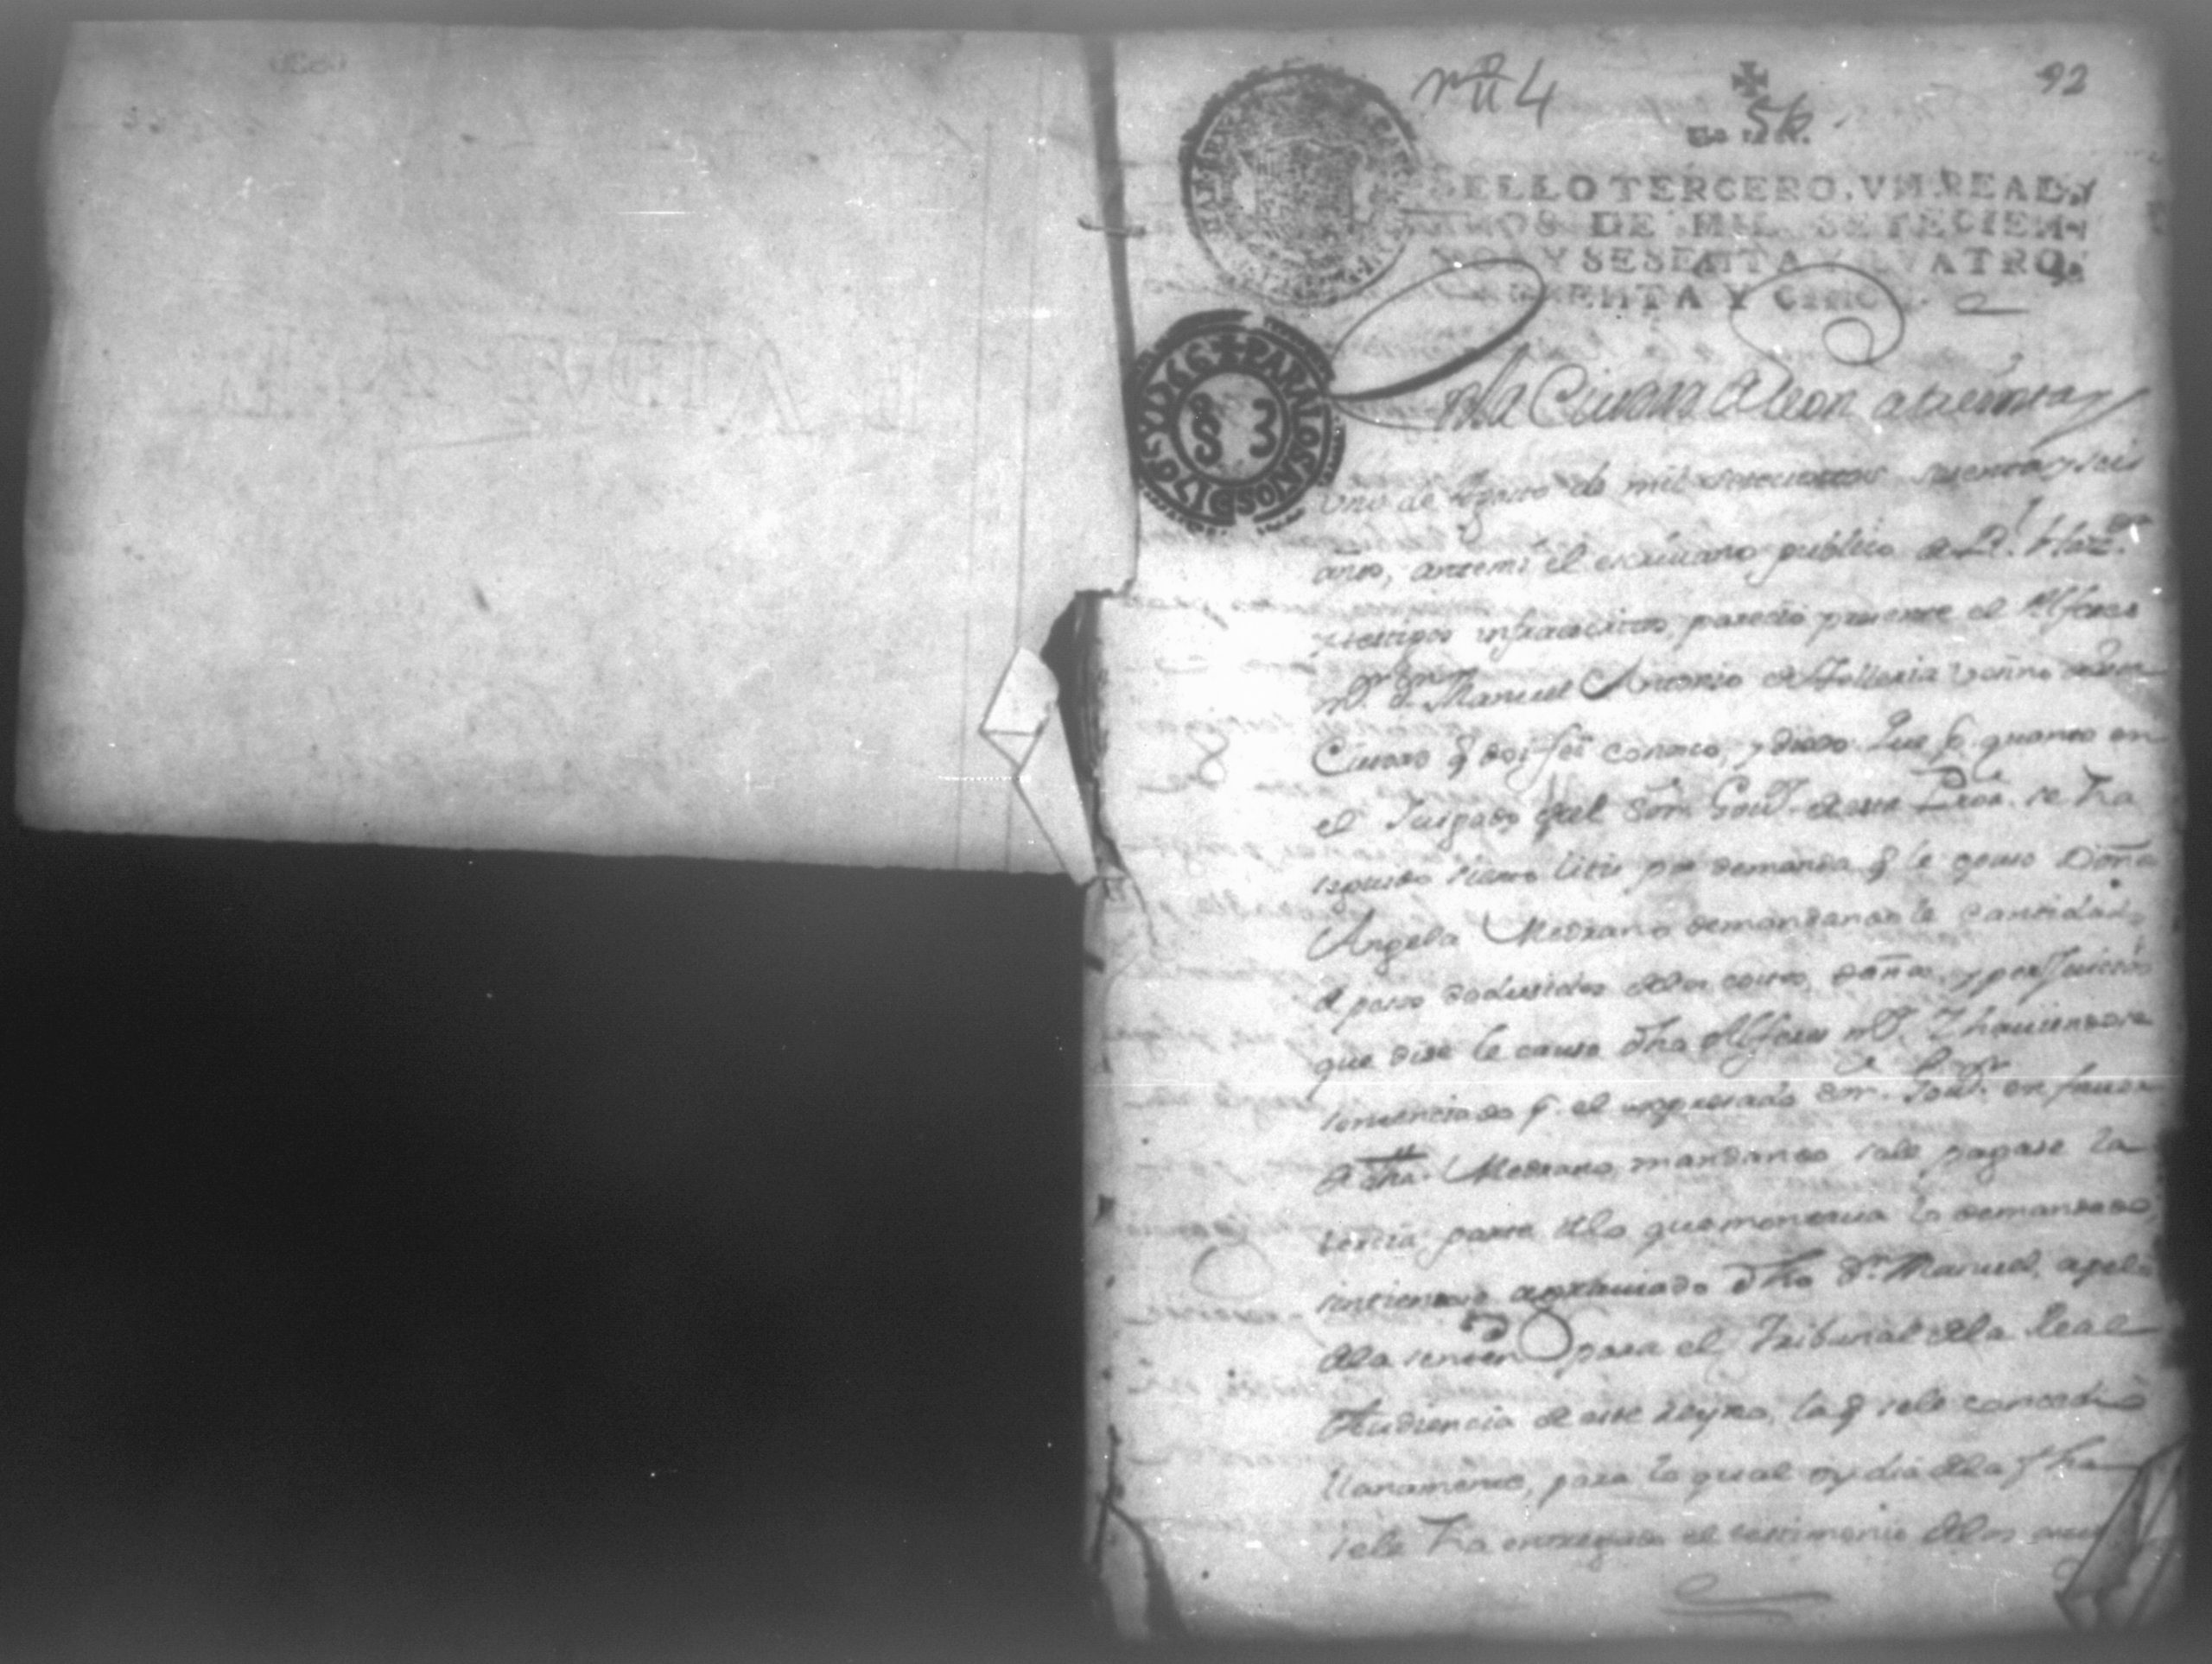 nº 4
56.
92
Un real.
SELLO TERCERO, VN REAL,
AÑOS DE MIL SETECIEN-
TOS Y SESENTA Y QVATRO,
SESENTA Y CINCO.
PARA LOS AÑOS D 1766 Y D 67
S 3 S
En la Ciudad de Leon a treinta y
uno de Agosto de mil setecientos sesenta y seis
años, antemi el escrivano publico de Rl. Hazda.
y testigos infraescritos, parecio presente el Alferes
mr. Dn. Manuel Antonio de vezino desta
Ciudad q doi feé conosco, y dixo: Que p. quanto en
el Jusgado del Sor. Govr. desta Proa. se ha
seguido litis por demanda q le puso Doña
Angela Medrano demandandole cantidad
de pesos de las costas, daños, y perjuicios
que dise le causo dho Alferes mr. Y haviendose
sentenciado p. el expresado Sor. Govr. en favor
de dha. Medrano, mandando sele pagase la
tercia parte dela que montava lo demandado,
sintiendose agraviado dho Dn. Manuel, apelo
dela senten para el Tribunal dela Real
Audiencia de este Reyno, la q sele concedio
llanamente, para lo qual oy dia dela fha
sele ha entregado el testimonio delos autos